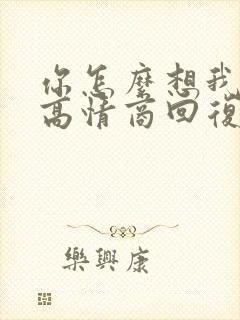 你怎麼想我
高情商回復
樂興康